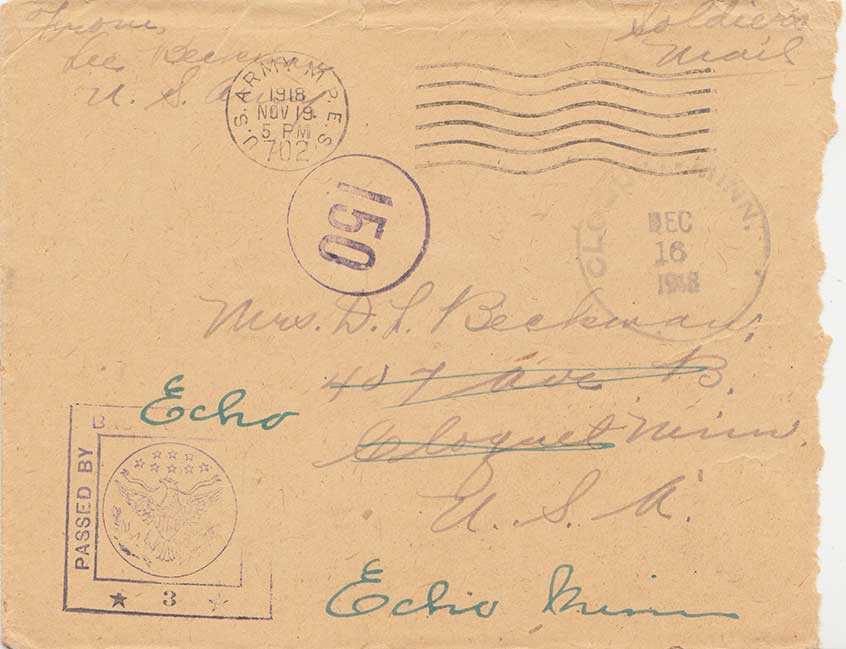 From,
Lee Beckman
U. S. Army
Soldier's
Mail
U.S. ARMY M.P.E.S.
1918
NOV 19
5 PM
702
150
MINN.
DEC
16
1918
Mrs. D. L. Beckman,
407 Ave B.
Cloquet Minn.
U. S. A.
Echo
PASSED BY
3
Echo Minn